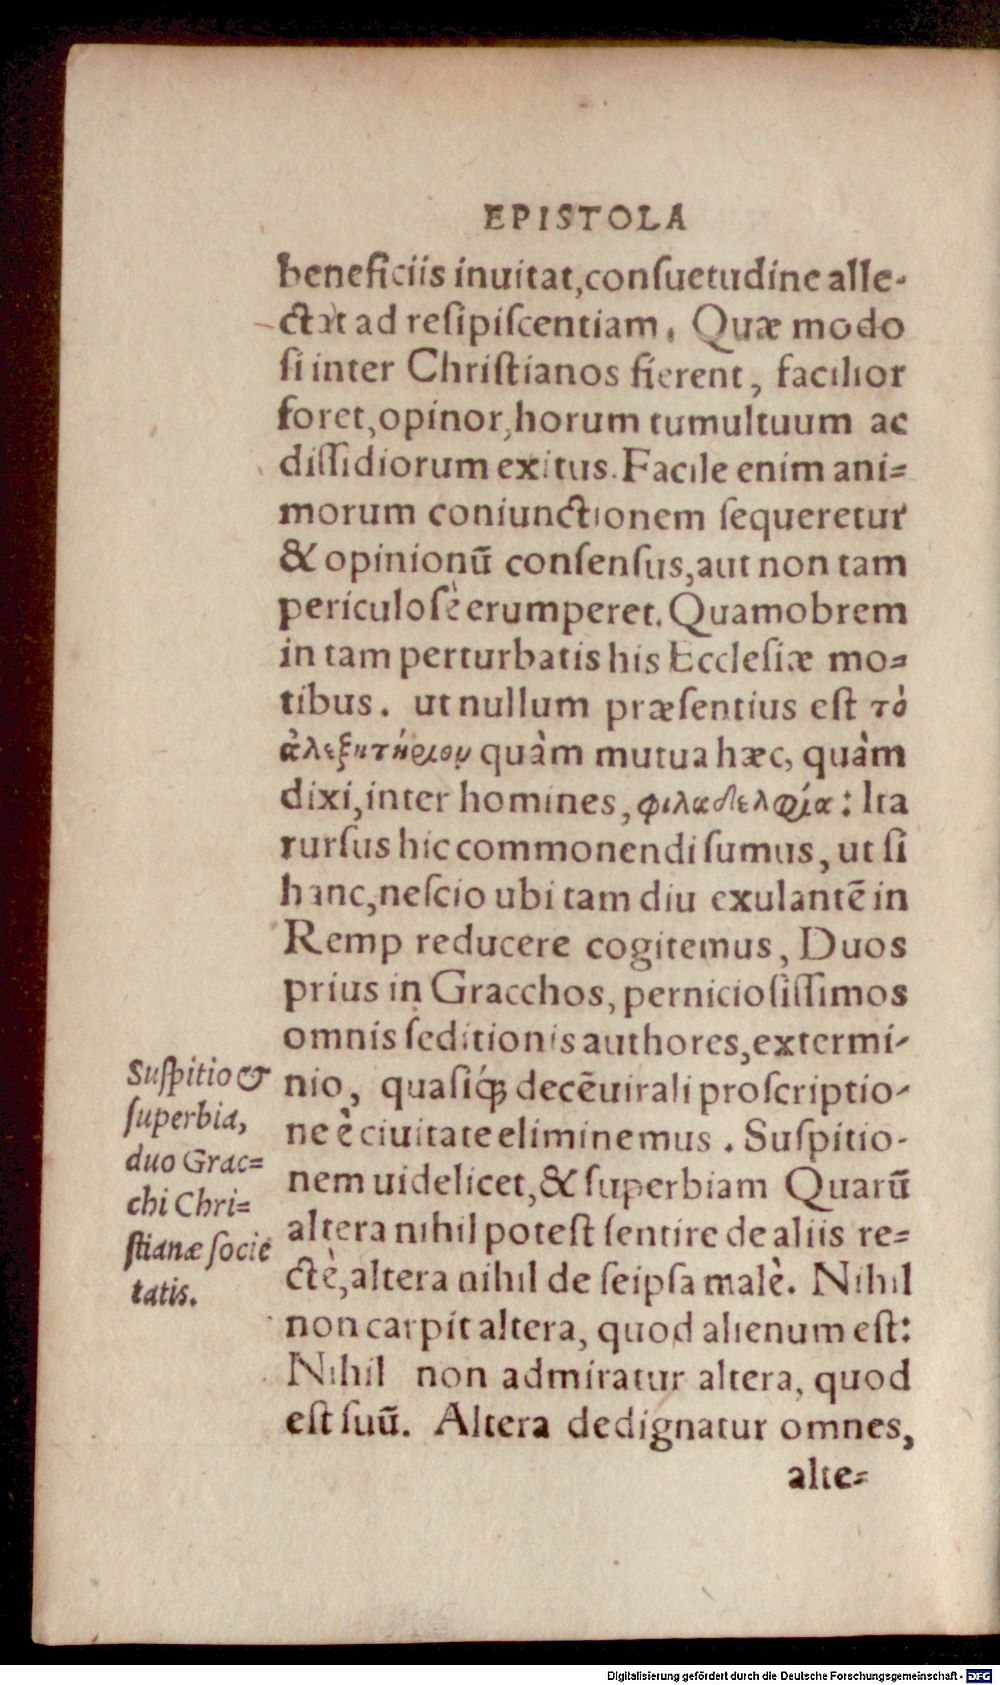 EPISTOLA
beneficiis inuitat, conſuetudine alle-
ctat ad reſipiſcentiam. Quæ modo
ſi inter Chriſtianos fierent, facilior
foret, opinor, horum tumultuum ac
diſſidiorum exitus. Facile enim ani=
morum coniunctionem ſequeretur
& opinionū conſenſus, aut non tam
periculoſè erumperet. Quamobrem
in tam perturbatis his Eccleſiæ mo=
tibus. ut nullum præſentius eſt τὸ
ἀλεξητήριου quàm mutua hæc, quàm
dixi, inter homines, φιλαδελφία: Ita
rurſus hic commonendi ſumus, ut ſi
hanc, neſcio ubi tam diu exulantē in
Remp reducere cogitemus, Duos
prius in Gracchos, pernicioſiſſimos
omnis ſeditionis authores, extermi-
nio, quaſiq́; decēuirali proſcriptio-
ne è ciuitate eliminemus. Suſpitio-
nem uidelicet, & ſuperbiam Quarū
altera nihil poteſt ſentire de aliis re=
ctè, altera nihil de ſeipſa malè. Nihil
non carpit altera, quod alienum eſt:
Nihil non admiratur altera, quod
eſt ſuū. Altera dedignatur omnes,
alte=
Suſpitio &
ſuperbia,
duo Grac=
chi Chri=
ſtianæ ſocie
tatis.
Digitalisierung gefördert durch die Deutsche Forschungsgemeinschaft - DFG